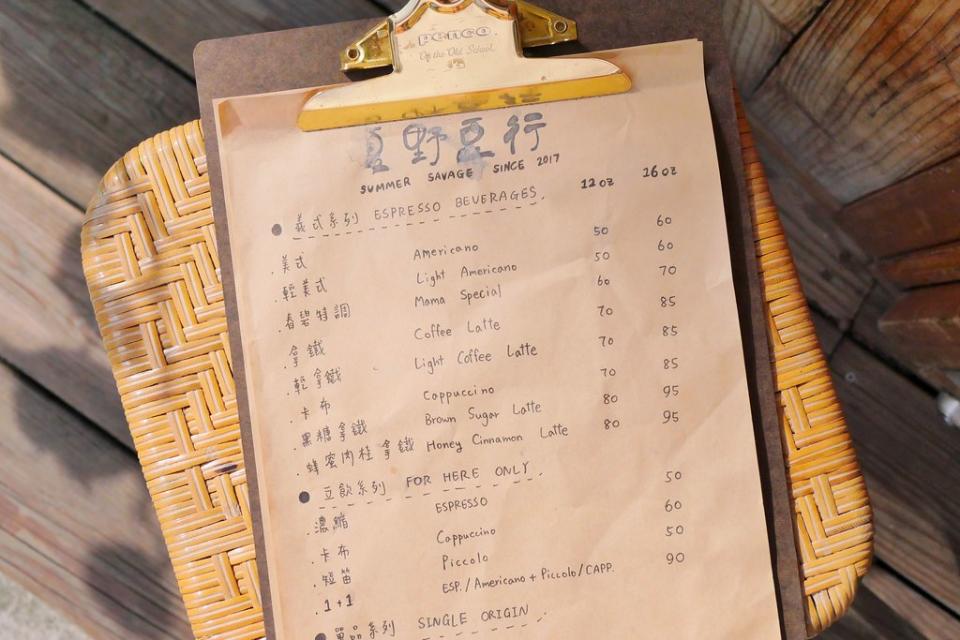 penco.
Of the Old School
夏野豆行
SUMMER SAVAGE SINCE 2017
12oz 16oz
● 義式系列 ESPRESSO BEVERAGES.
.美式 Americano 50 60
.輕美式 Light Americano 50 60
.春碧特調 Mama Special 60 70
.拿鐵 Coffee Latte 70 85
.輕拿鐵 Light Coffee Latte 70 85
.卡布 Cappuccino 70 85
.黑糖拿鐵 Brown Sugar Latte 80 95
.蜂蜜肉桂拿鐵 Honey Cinnamon Latte 80 95
● 立飲系列 FOR HERE ONLY.
.濃縮 ESPRESSO 50
.卡布 Cappuccino 60
.短笛 Piccolo 50
.1+1 ESP./Americano + Piccolo/CAPP. 90
● 單品系列 SINGLE ORIGIN.